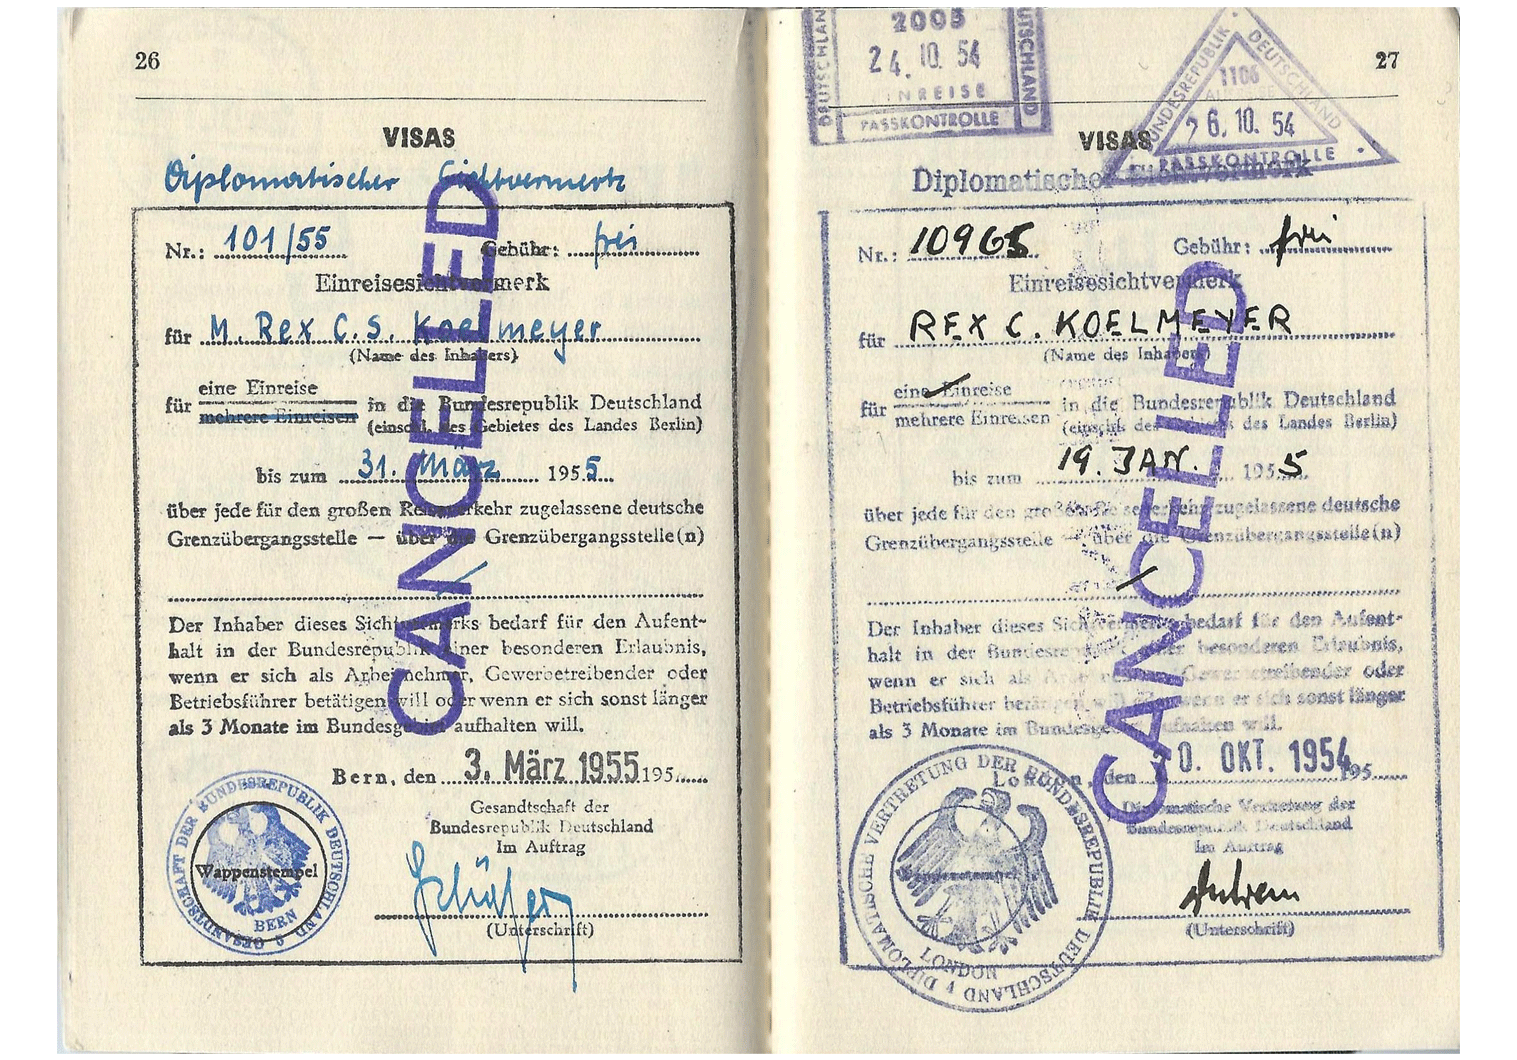 26
VISAS
Diplomatischer Sichtvermerk
Nr.: 101/55 Gebühr: frei
Einreisesichtvermerk
für M. Rex C. S. Koelmeyer
(Name des Inhabers)
für eine Einreise
mehrere Einreisen
in die Bundesrepublik Deutschland
(einschl. des Gebietes des Landes Berlin)
bis zum 31. März 1955
über jede für den großen Reiseverkehr zugelassene deutsche
Grenzübergangsstelle — über die Grenzübergangsstelle(n)
Der Inhaber dieses Sichtvermerks bedarf für den Aufent-
halt in der Bundesrepublik einer besonderen Erlaubnis,
wenn er sich als Arbeitnehmer, Gewerbetreibender oder
Betriebsführer betätigen will oder wenn er sich sonst länger
als 3 Monate im Bundesgebiet aufhalten will.
Bern, den 3. März 1955 195
Gesandtschaft der
Bundesrepublik Deutschland
Im Auftrag
(Unterschrift)
Wappenstempel
GESANDTSCHAFT DER BUNDESREPUBLIK DEUTSCHLAND
BERN
CANCELLED
27
DEUTSCHLAND
2005
24. 10. 54
EINREISE
PASSKONTROLLE
BUNDESREPUBLIK DEUTSCHLAND
1106
26. 10. 54
PASSKONTROLLE
VISAS
Diplomatischer Sichtvermerk
Nr.: 10965 Gebühr: frei
Einreisesichtvermerk
für REX C. KOELMEYER
(Name des Inhabers)
für eine Einreise
mehrere Einreisen
in die Bundesrepublik Deutschland
(einschl. des Gebietes des Landes Berlin)
bis zum 19. JAN. 1955
über jede für den großen Reiseverkehr zugelassene deutsche
Grenzübergangsstelle — über die Grenzübergangsstelle(n)
Der Inhaber dieses Sichtvermerks bedarf für den Aufent-
halt in der Bundesrepublik einer besonderen Erlaubnis,
wenn er sich als Arbeitnehmer, Gewerbetreibender oder
Betriebsführer betätigen will oder wenn er sich sonst länger
als 3 Monate im Bundesgebiet aufhalten will.
London, den 20. OKT. 1954 195
Diplomatische Vertretung der
Bundesrepublik Deutschland
Im Auftrag
(Unterschrift)
Wappenstempel
DIPLOMATISCHE VERTRETUNG DER BUNDESREPUBLIK DEUTSCHLAND
LONDON
CANCELLED